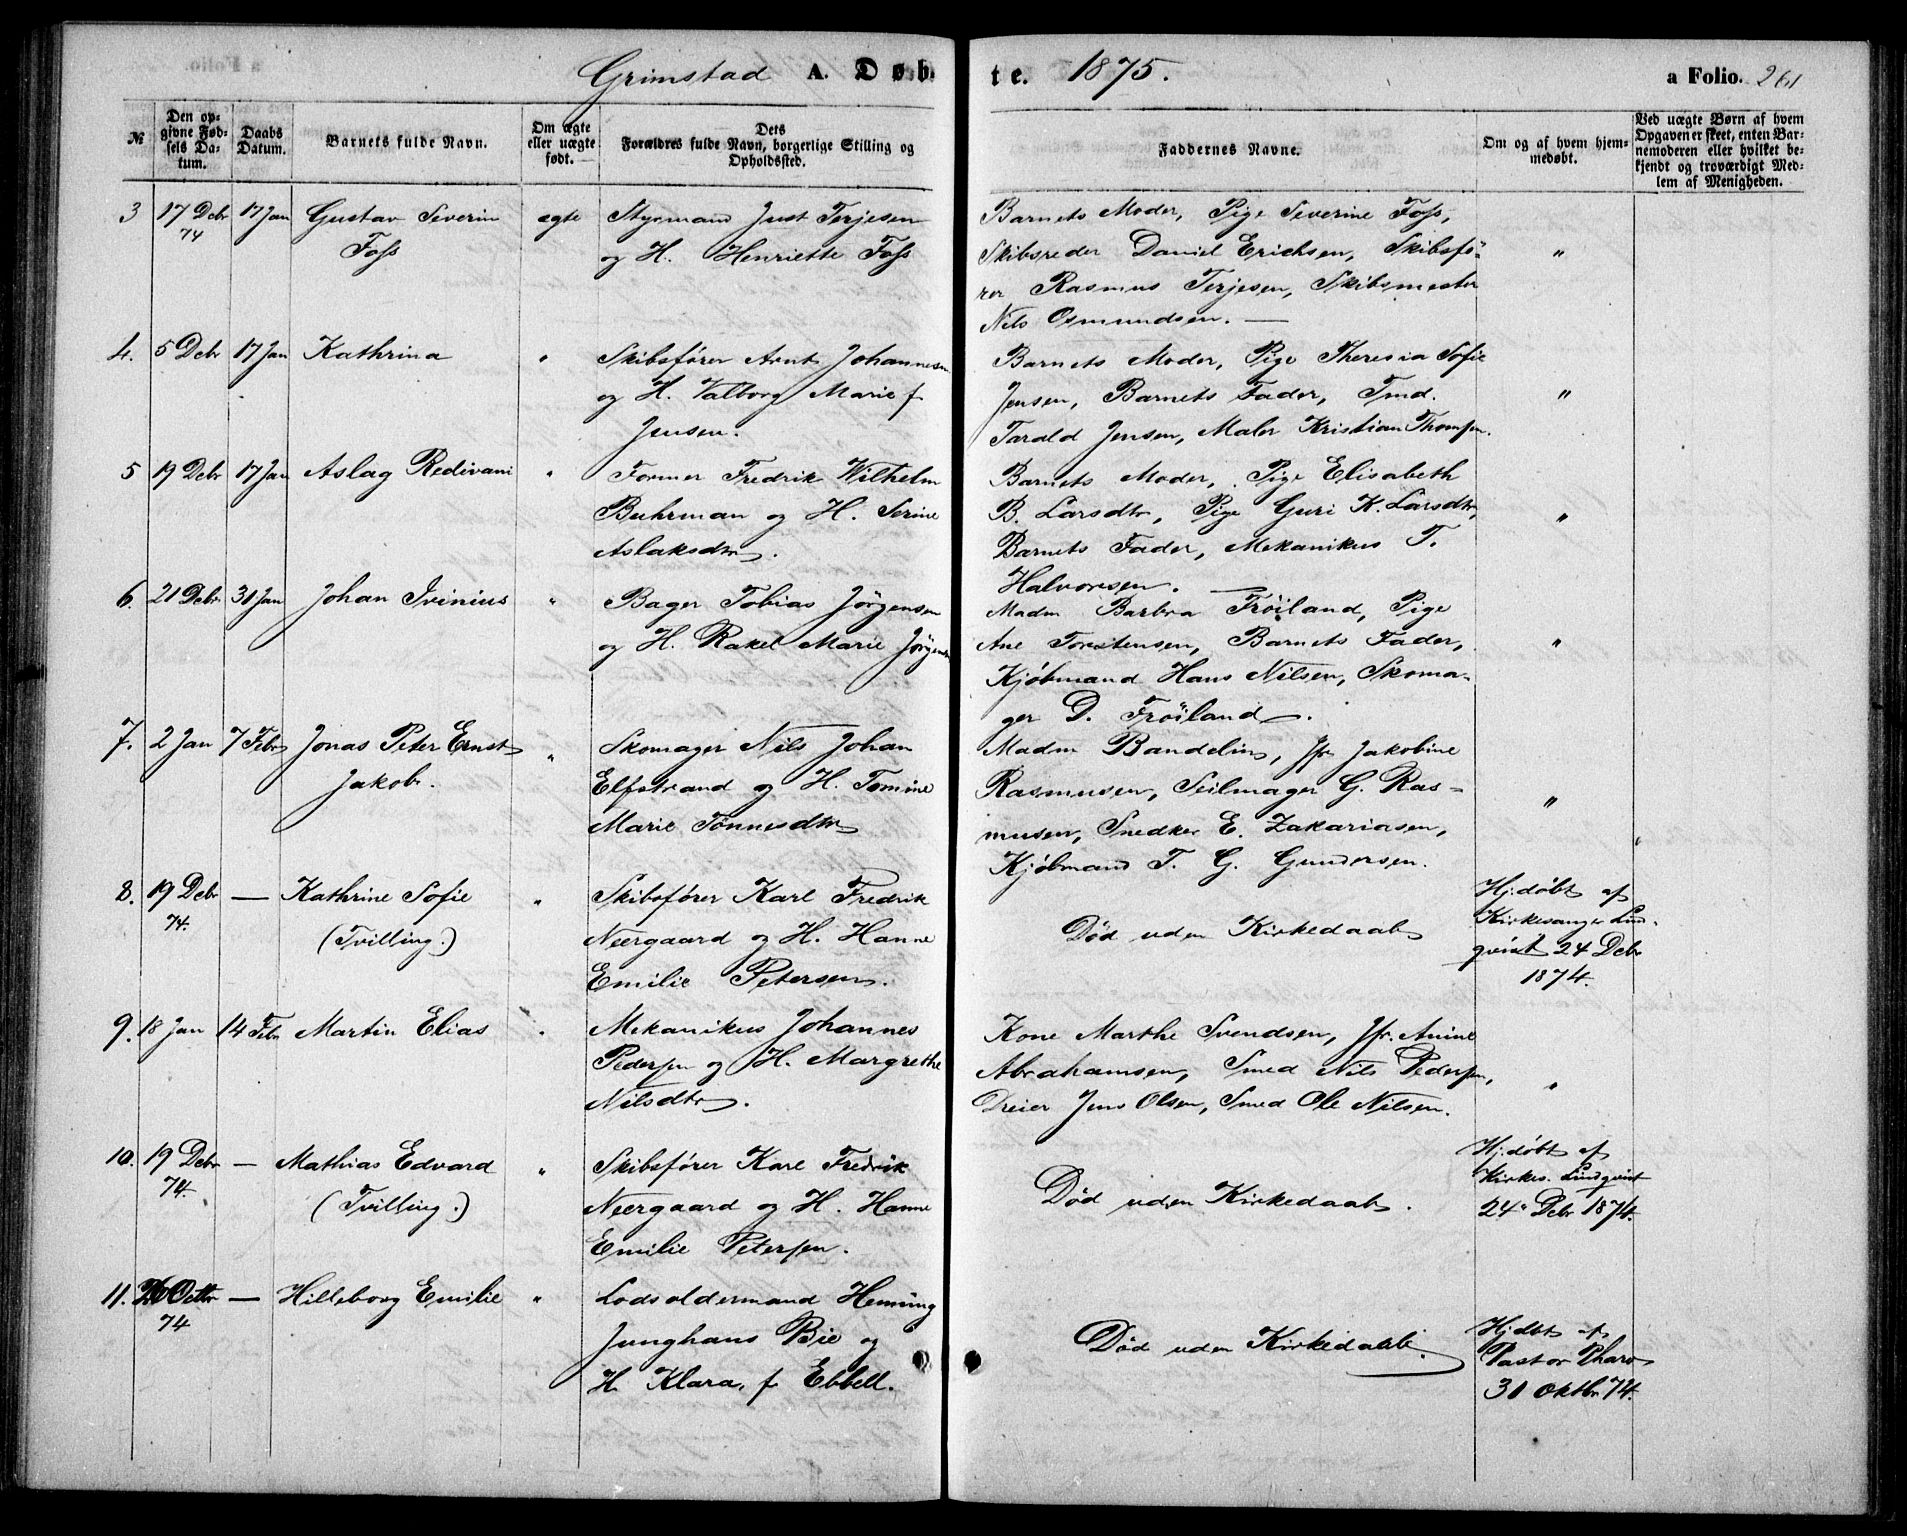 Grimstad A. Døb
te. 1875. a Folio. 261
№
Den op-
givne Fød-
sels Da-
tum.
Daabs
Datum.
Barnets fulde Navn.
Om ægte
eller uægte
født.
Dets
Forældres fulde Navn, borgerlige Stilling og
Opholdssted.
Faddernes Navne.
Om og af hvem hjem-
medøbt.
Ved uægte Børn af hvem
Opgaven er skeet, enten Bar-
nemoderen eller hvilket be-
kjendt og troværdigt Med-
lem af Menigheden.
3 17 Debr 17 Jan Gustav Severin ægte Styrmand Just Terjesen
74 Foss og H. Henriette Foss
Barnets Moder, Pige Severine Foss,
Skibsreder Daniel Erichsen, Skibsfö- "
rer Rasmus Terjesen, Skibsmester
Nils Osmundsen. —
4. 5 Debr 17 Jan Kathrina " Skibsfører Arnt Johannesen
og H. Valborg Marie f
Jensen.
Barnets Moder, Pige Theresia Sofie
Jensen, Barnets Fader, Tmd. "
Tarald Jensen, Maler Kristian Thomsen.
5 19 Debr 17 Jan Aslag Redivani " Former Fredrik Wilhelm
Buhrman og H. Serine
Aslaksdtr.
Barnets Moder, Pige Elisabeth
B. Larsdtr, Pige Guri K. Larsdtr, "
Barnets Fader, Mekanikus T.
Halvorsen. —
6. 21 Debr 31 Jan Johan Irinius " Bager Tobias Jörgensen
og H. Rakel Marie Jörgensen
Madm Barbra Fröiland, Pige
Ane Torstensen, Barnets Fader, "
Kjøbmand Hans Nilsen, Skoma-
ger D. Fröiland.
7. 2 Jan 7 Febr Jonas Peter Ernst " Skomager Nils Johan
Jakob. Elfstrand og H. Tomine
Marie Tönnesdtr
Madm Bandelin, Jfr Jakobine
Rasmusen, Seilmager G. Ras- "
musen, Snedker E. Zakariasen, "
Kjøbmand T. G. Gundersen.
8. 19 Debr — Kathrine Sofie " Skibsfører Karl Fredrik
74. (Tvilling.) Neergaard og H. Hanne
Emilie Petersen.
Død uden Kirkedaab
Hj.døbt af
Kirkesanger Lind-
qvist 24 Debr
1874.
9. 18 Jan 14 Febr Martin Elias " Mekanikus Johannes
Pedersen og H. Margrethe
Nilsdtr.
Kone Marthe Svendsen, Jfr. Anine
Abrahamsen, Smed Nils Pedersen, "
Dreier Jens Olsen, Smed Ole Nilsen.
10. 19 Debr — Mathias Edvard " Skibsfører Karl Fredrik
74. (Tvilling.) Neergaard og H. Hanne
Emilie Petersen.
Død uden Kirkedaab.
Hj.døbt af
Kirkes. Lindqvist
24 Debr 1874.
11. Octbr — Hilleborg Emilie " Lodsoldermand Henning
74 Junghans Bie og
H Klara, f Ebbell.
Død uden Kirkedaab.
Hj.dbt af
Pastor Pharo
31 Oktbr 74.